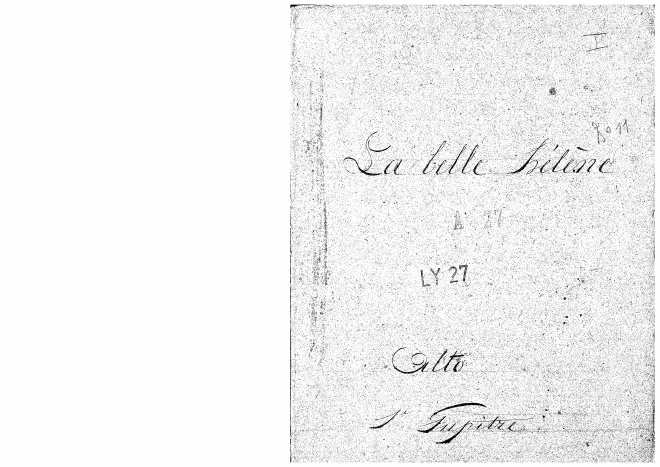 I
No 11
La belle hélène
A 27
LY 27
Alto
1er Pupitre